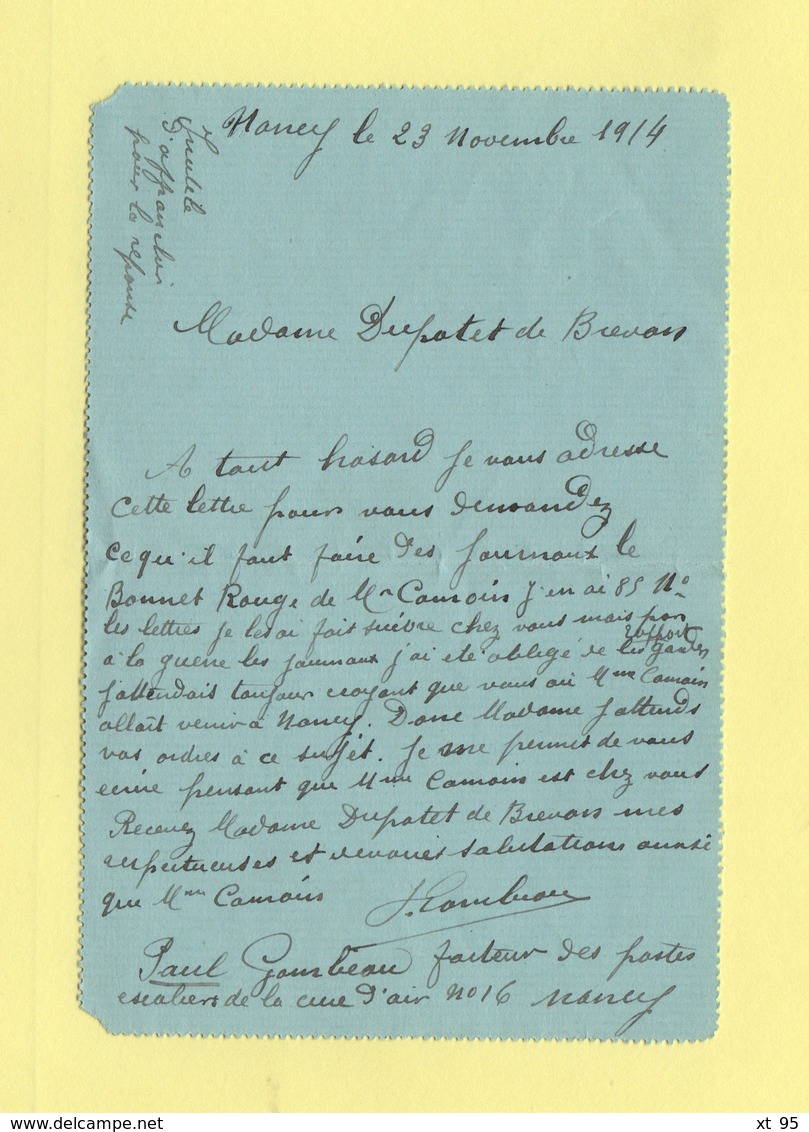 Nancy le 23 Novembre 1914
Inutile
d'affranchir
pour la reponse
Madame Dupotet de Brevans
A tout hasard je vous adresse
cette lettre pour vous demandez
ce qu'il faut faire des journaux le
Bonnet Rouge de Mr Camoin J'en ai 85 No
les lettres je les ai fait suivre chez vous mais par rapport
à la guerre les journaux j'ai été obligé de les garder
j'attendais toujour croyant que vous ou Mme Camoin
allait venir à Nancy. Donc Madame j'attends
vos ordres à ce sujet. Je me permet de vous
ecrire pensant que Mme Camoin est chez vous
Recevez Madame Dupotet de Brevans mes
respectueuses et devoués salutations ainsi
que Mme Camoin
Paul Gombeau facteur des postes
escaliers de la cure d'air No 16 Nancy
xt 95